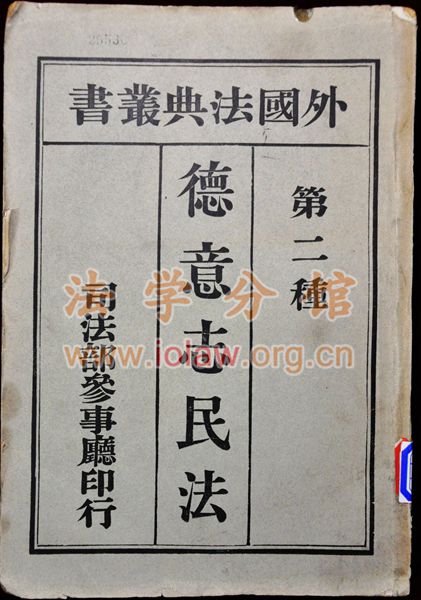 外國法典叢書
第二種
德意志民法
司法部參事廳印行
法学分馆
www.iolaw.org.cn